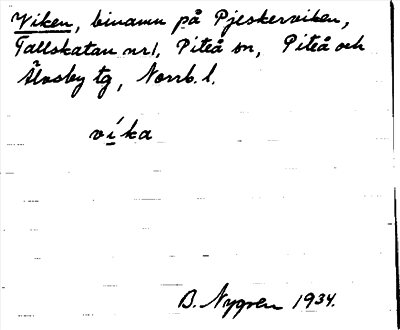 Viken, binamn på Pjeskerviken,
Tallskatan nr 1, Piteå sn, Piteå och
Älvsby tg, Norrb. l.
víka
B. Nygren 1934.